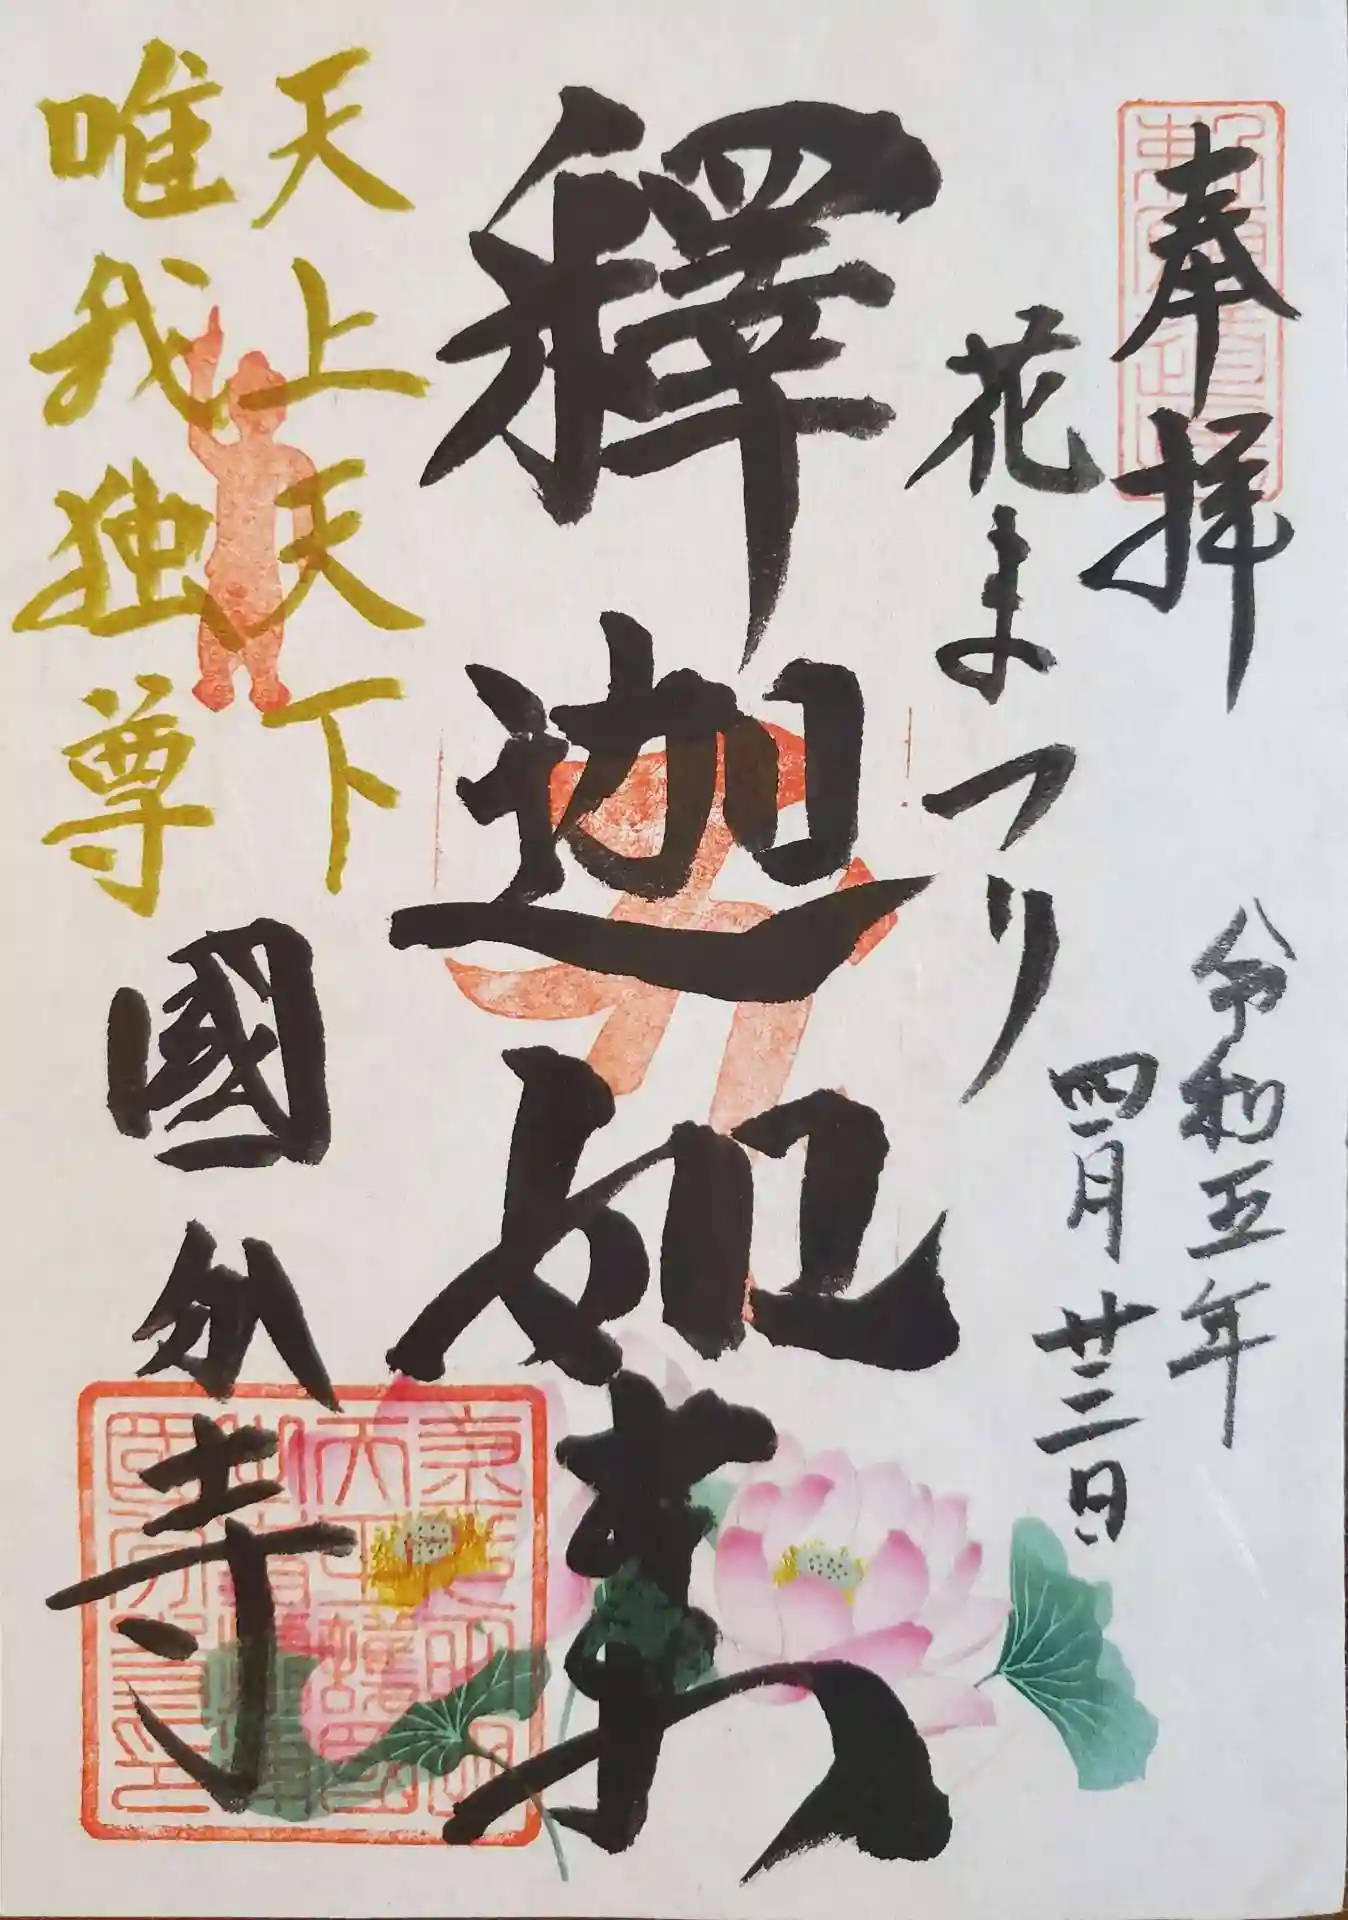 奉拝
令和五年
四月廿三日
花まつり
釋迦如来
天上天下
唯我独尊
國分寺